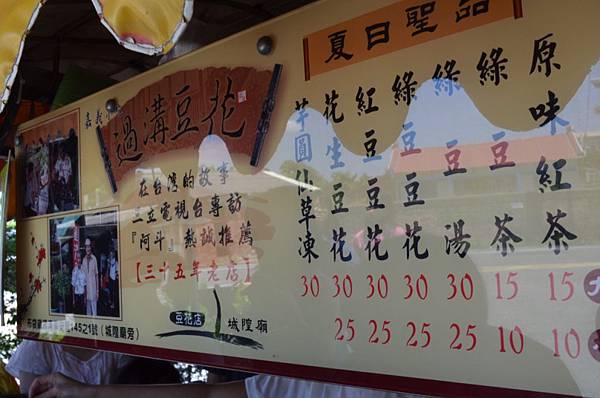 嘉義
過溝豆花
在台湾的故事
三立電視台專訪
『阿斗』熱誠推薦
【三十五年老店】
145之1號(城隍廟旁)
豆花店
城隍廟
夏日聖品
芋圓仙草凍 30
花生豆花 30 25
紅豆豆花 30 25
綠豆豆花 30 25
綠豆湯 30 25
綠豆茶 15 10
原味紅茶 15 10